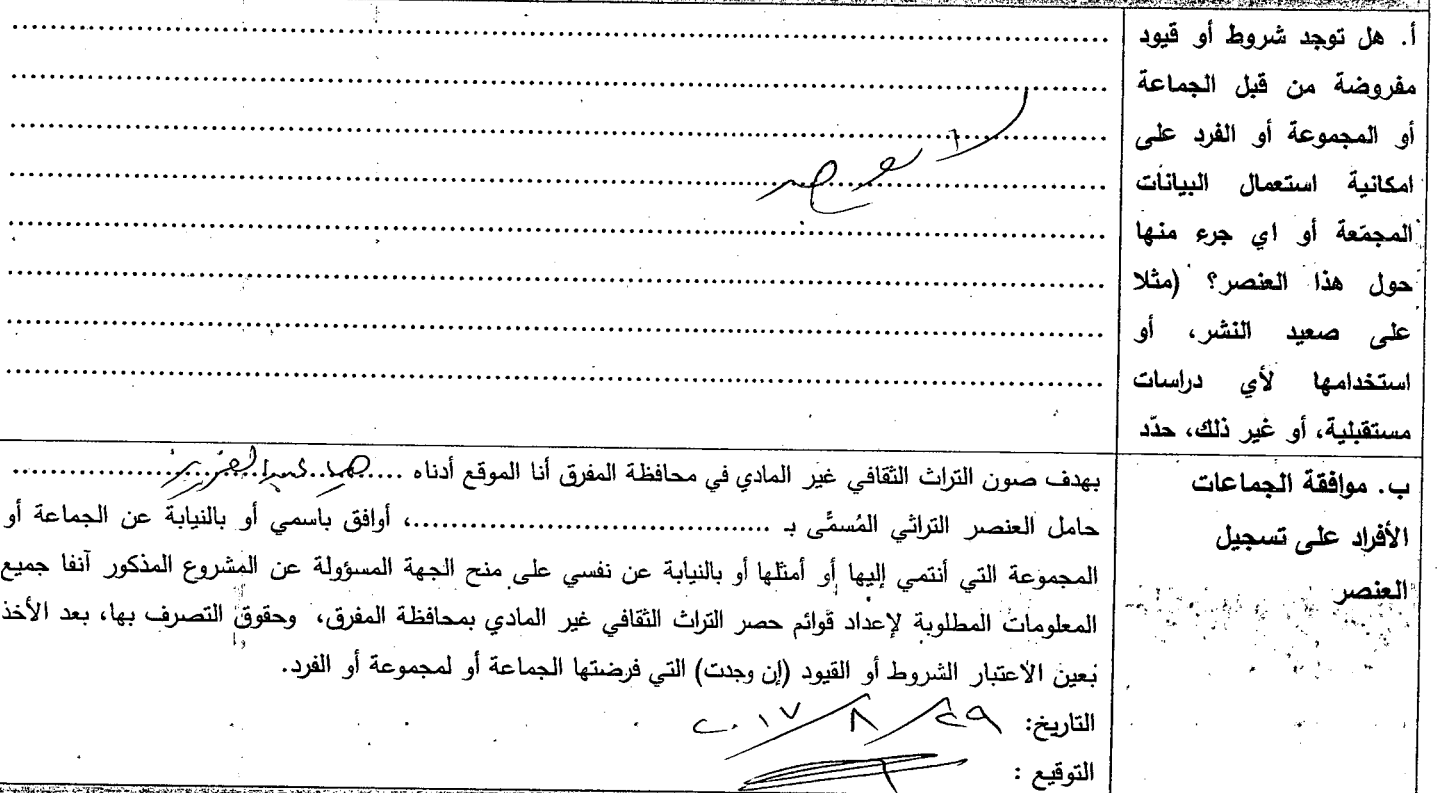 أ. هل توجد شروط أو قيود
مفروضة من قبل الجماعة
أو المجموعة أو الفرد على
امكانية استعمال البيانات
المجمّعة أو اي جرء منها
حول هذا العنصر؟ (مثلا
على صعيد النشر، أو
استخدامها لأي دراسات
مستقبلية، أو غير ذلك، حدّد
لا يوجد
ب. موافقة الجماعات
الأفراد على تسجيل
العنصر
بهدف صون التراث الثقافي غير المادي في محافظة المفرق أنا الموقع أدناه ..... عبد العزيز .....
حامل العنصر التراثي المُسمَّى بـ ....................................، أوافق باسمي أو بالنيابة عن الجماعة أو
المجموعة التي أنتمي إليها أو أمثلها أو بالنيابة عن نفسي على منح الجهة المسؤولة عن المشروع المذكور آنفا جميع
المعلومات المطلوبة لإعداد قوائم حصر التراث الثقافي غير المادي بمحافظة المفرق، وحقوق التصرف بها، بعد الأخذ
بعين الاعتبار الشروط أو القيود (إن وجدت) التي فرضتها الجماعة أو لمجموعة أو الفرد.
التاريخ: ٢٩/٨/٢٠١٧
التوقيع :